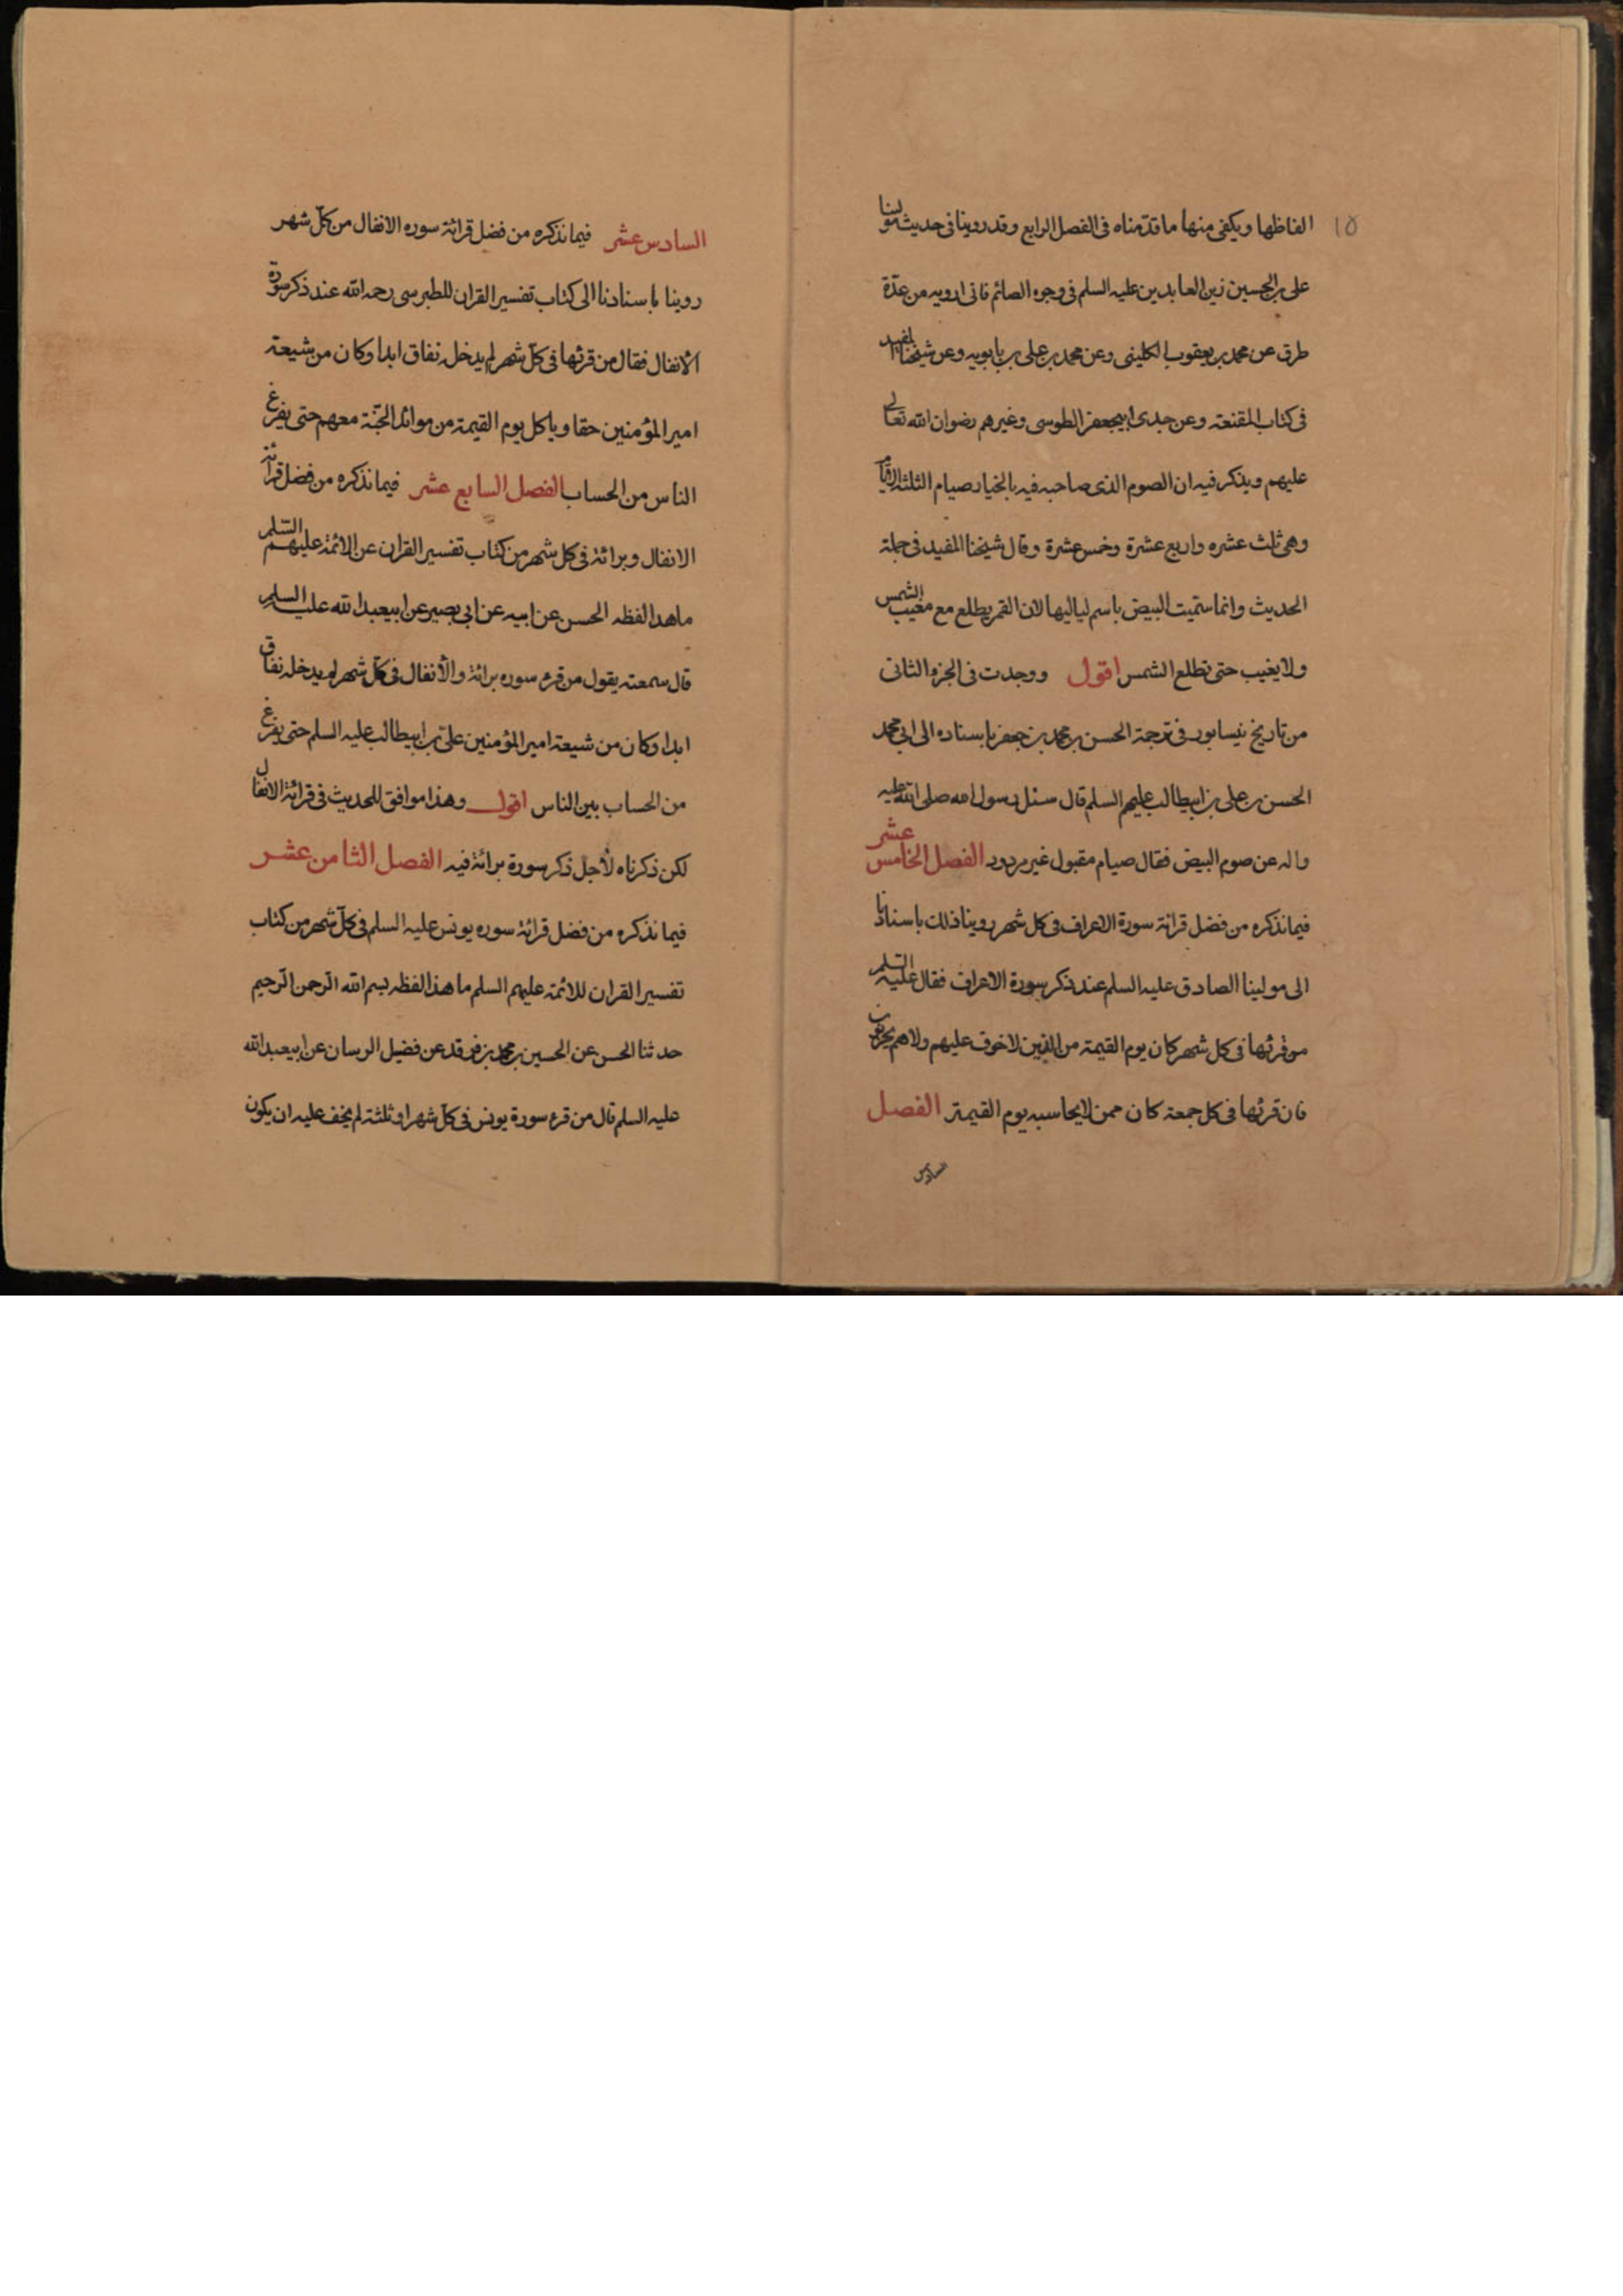 ١٥
الفاظها ويكفى منها ما قدمناه فى الفصل الرابع وقد روينا فى حديث مولينا
على بن الحسين زين العابدين عليه السلم فى وجوه الصائم فانى ارويه من عدّة
طرق عن محمد بن يعقوب الكلينى وعن محمد بن على بن بابويه وعن شيخنا المفيد
فى كتاب المقنعة وعن جدى ابيجعفر الطوسى وغيرهم رضوان الله تعالى
عليهم ويذكر فيه ان الصوم الذى صاحبه فيه بالخيار صيام الثلثة الايام
وهى ثلث عشره واربع عشرة وخمس عشرة وقال شيخنا المفيد فى جملة
الحديث وانما سمّيت البيض باسم لياليها لان القمر يطلع مع مغيب الشمس
ولا يغيب حتى تطلع الشمس اقول ووجدت فى الجزء الثانى
من تاريخ نيسابور فى ترجمة الحسن بن محمد بن جعفر باسناده الى ابى محمد
الحسن بن على بن ابيطالب عليهم السلم قال سئل رسول الله صلى الله عليه
واله عن صوم البيض فقال صيام مقبول غير مردود الفصل الخامس عشر
فيما نذكره من فضل قرائة سورة الاعراف فى كل شهر روينا ذلك باسنادنا
الى مولينا الصادق عليه السلم عند ذكر سورة الاعراف فقال عليه السّلم
من قرئها فى كل شهر كان يوم القيمة من الذين لاخوف عليهم ولا هم يحزنون
فان قرئها فى كل جمعة كان ممن لايحاسبه يوم القيمة الفصل
السادس
السادس عشر فيما نذكره من فضل قرائة سوره الانفال من كلّ شهر
روينا باسنادنا الى كتاب تفسير القران للطبرسى رحمه الله عند ذكر سورة
الأنفال فقال من قرئها فى كلّ شهر لم يدخله نفاق ابدا وكان من شيعة
امير المؤمنين حقا وياكل يوم القيمة من موائد الجنّة معهم حتى يفرغ
الناس من الحساب الفصل السابع عشر فيما نذكره من فضل قرائة
الانفال وبرائة فى كل شهر من كتاب تفسير القران عن الائمة عليهم السّلم
ماهذا لفظه الحسن عن ابيه عن ابى بصير عن ابيعبدالله عليه السلم
قال سمعته يقول من قرء سوره برائة والأنفال فى كلّ شهر لم يدخله نفاق
ابدا وكان من شيعة امير المؤمنين علىّ بن ابيطالب عليه السلم حتى يفرغ
من الحساب بين الناس اقول وهذا موافق للحديث فى قرائة الانفال
لكن ذكرناه لأجل ذكر سورة برائة فيه الفصل الثامن عشر
فيما نذكره من فضل قرائة سوره يونس عليه السلم فى كلّ شهر من كتاب
تفسير القران للائمة عليهم السلم ماهذا لفظه بسم الله الرّحمن الرّحيم
حدثنا الحسن عن الحسين بن محمد بن فرقد عن فضيل الرسان عن ابيعبدالله
عليه السلم قال من قرء سورة يونس فى كلّ شهر او ثلثة لم يخف عليه ان يكون